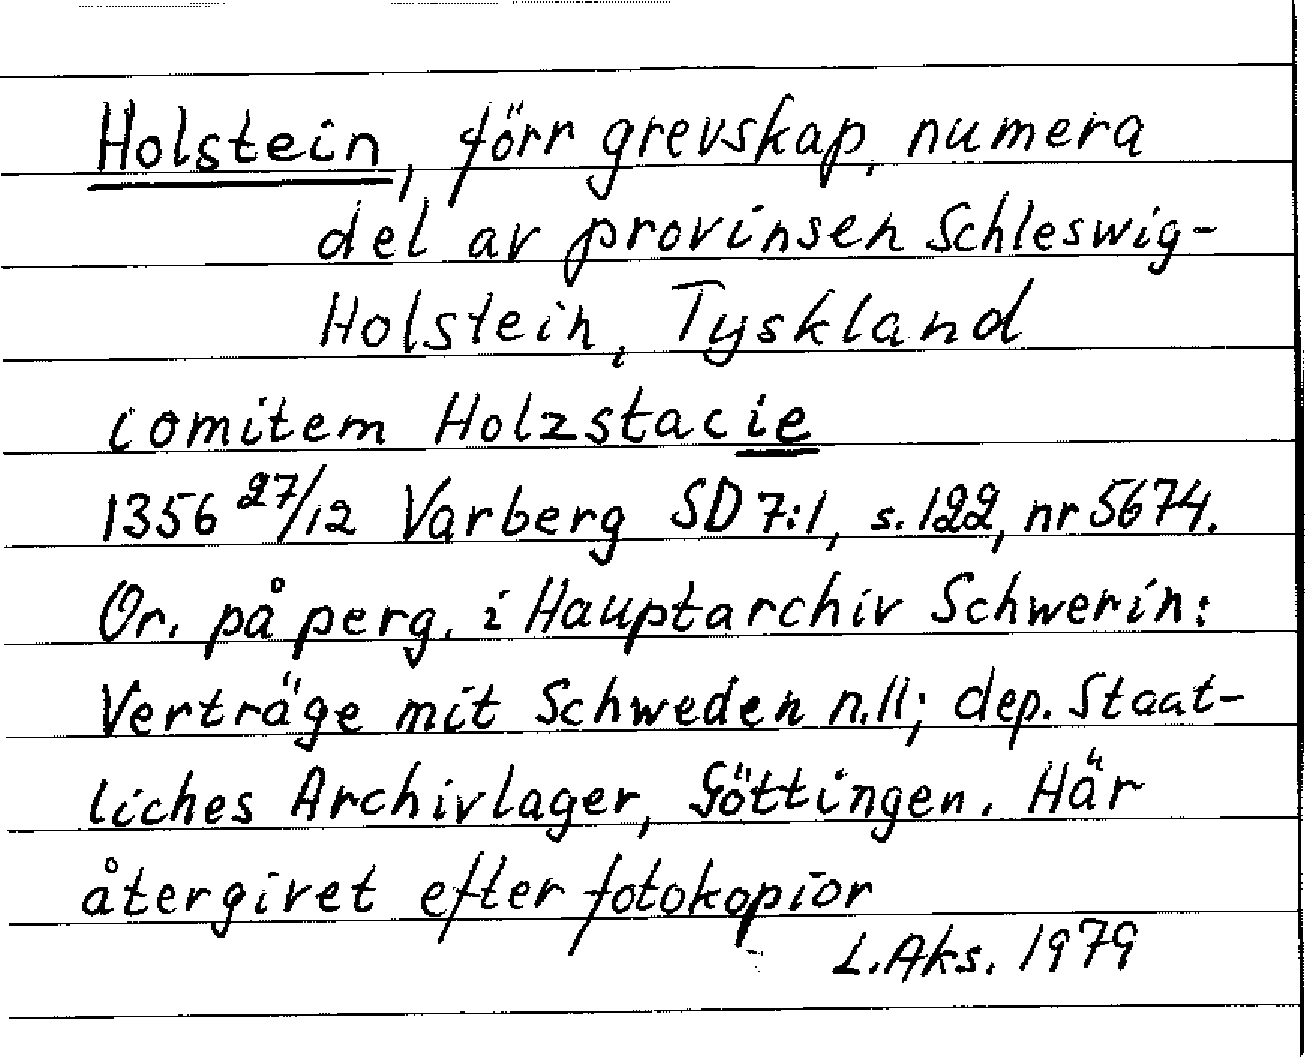 Holstein, förr grevskap, numera
del av provinsen Schleswig-
Holstein, Tyskland
comitem Holzstacie
1356 27/12 Varberg SD 7:1, s. 122, nr 5674.
Or. på perg. i Hauptarchiv Schwerin:
Verträge mit Schweden n. 11; dep. Staat-
liches Archivlager, Göttingen. Här
återgivet efter fotokopior
L. Aks. 1979